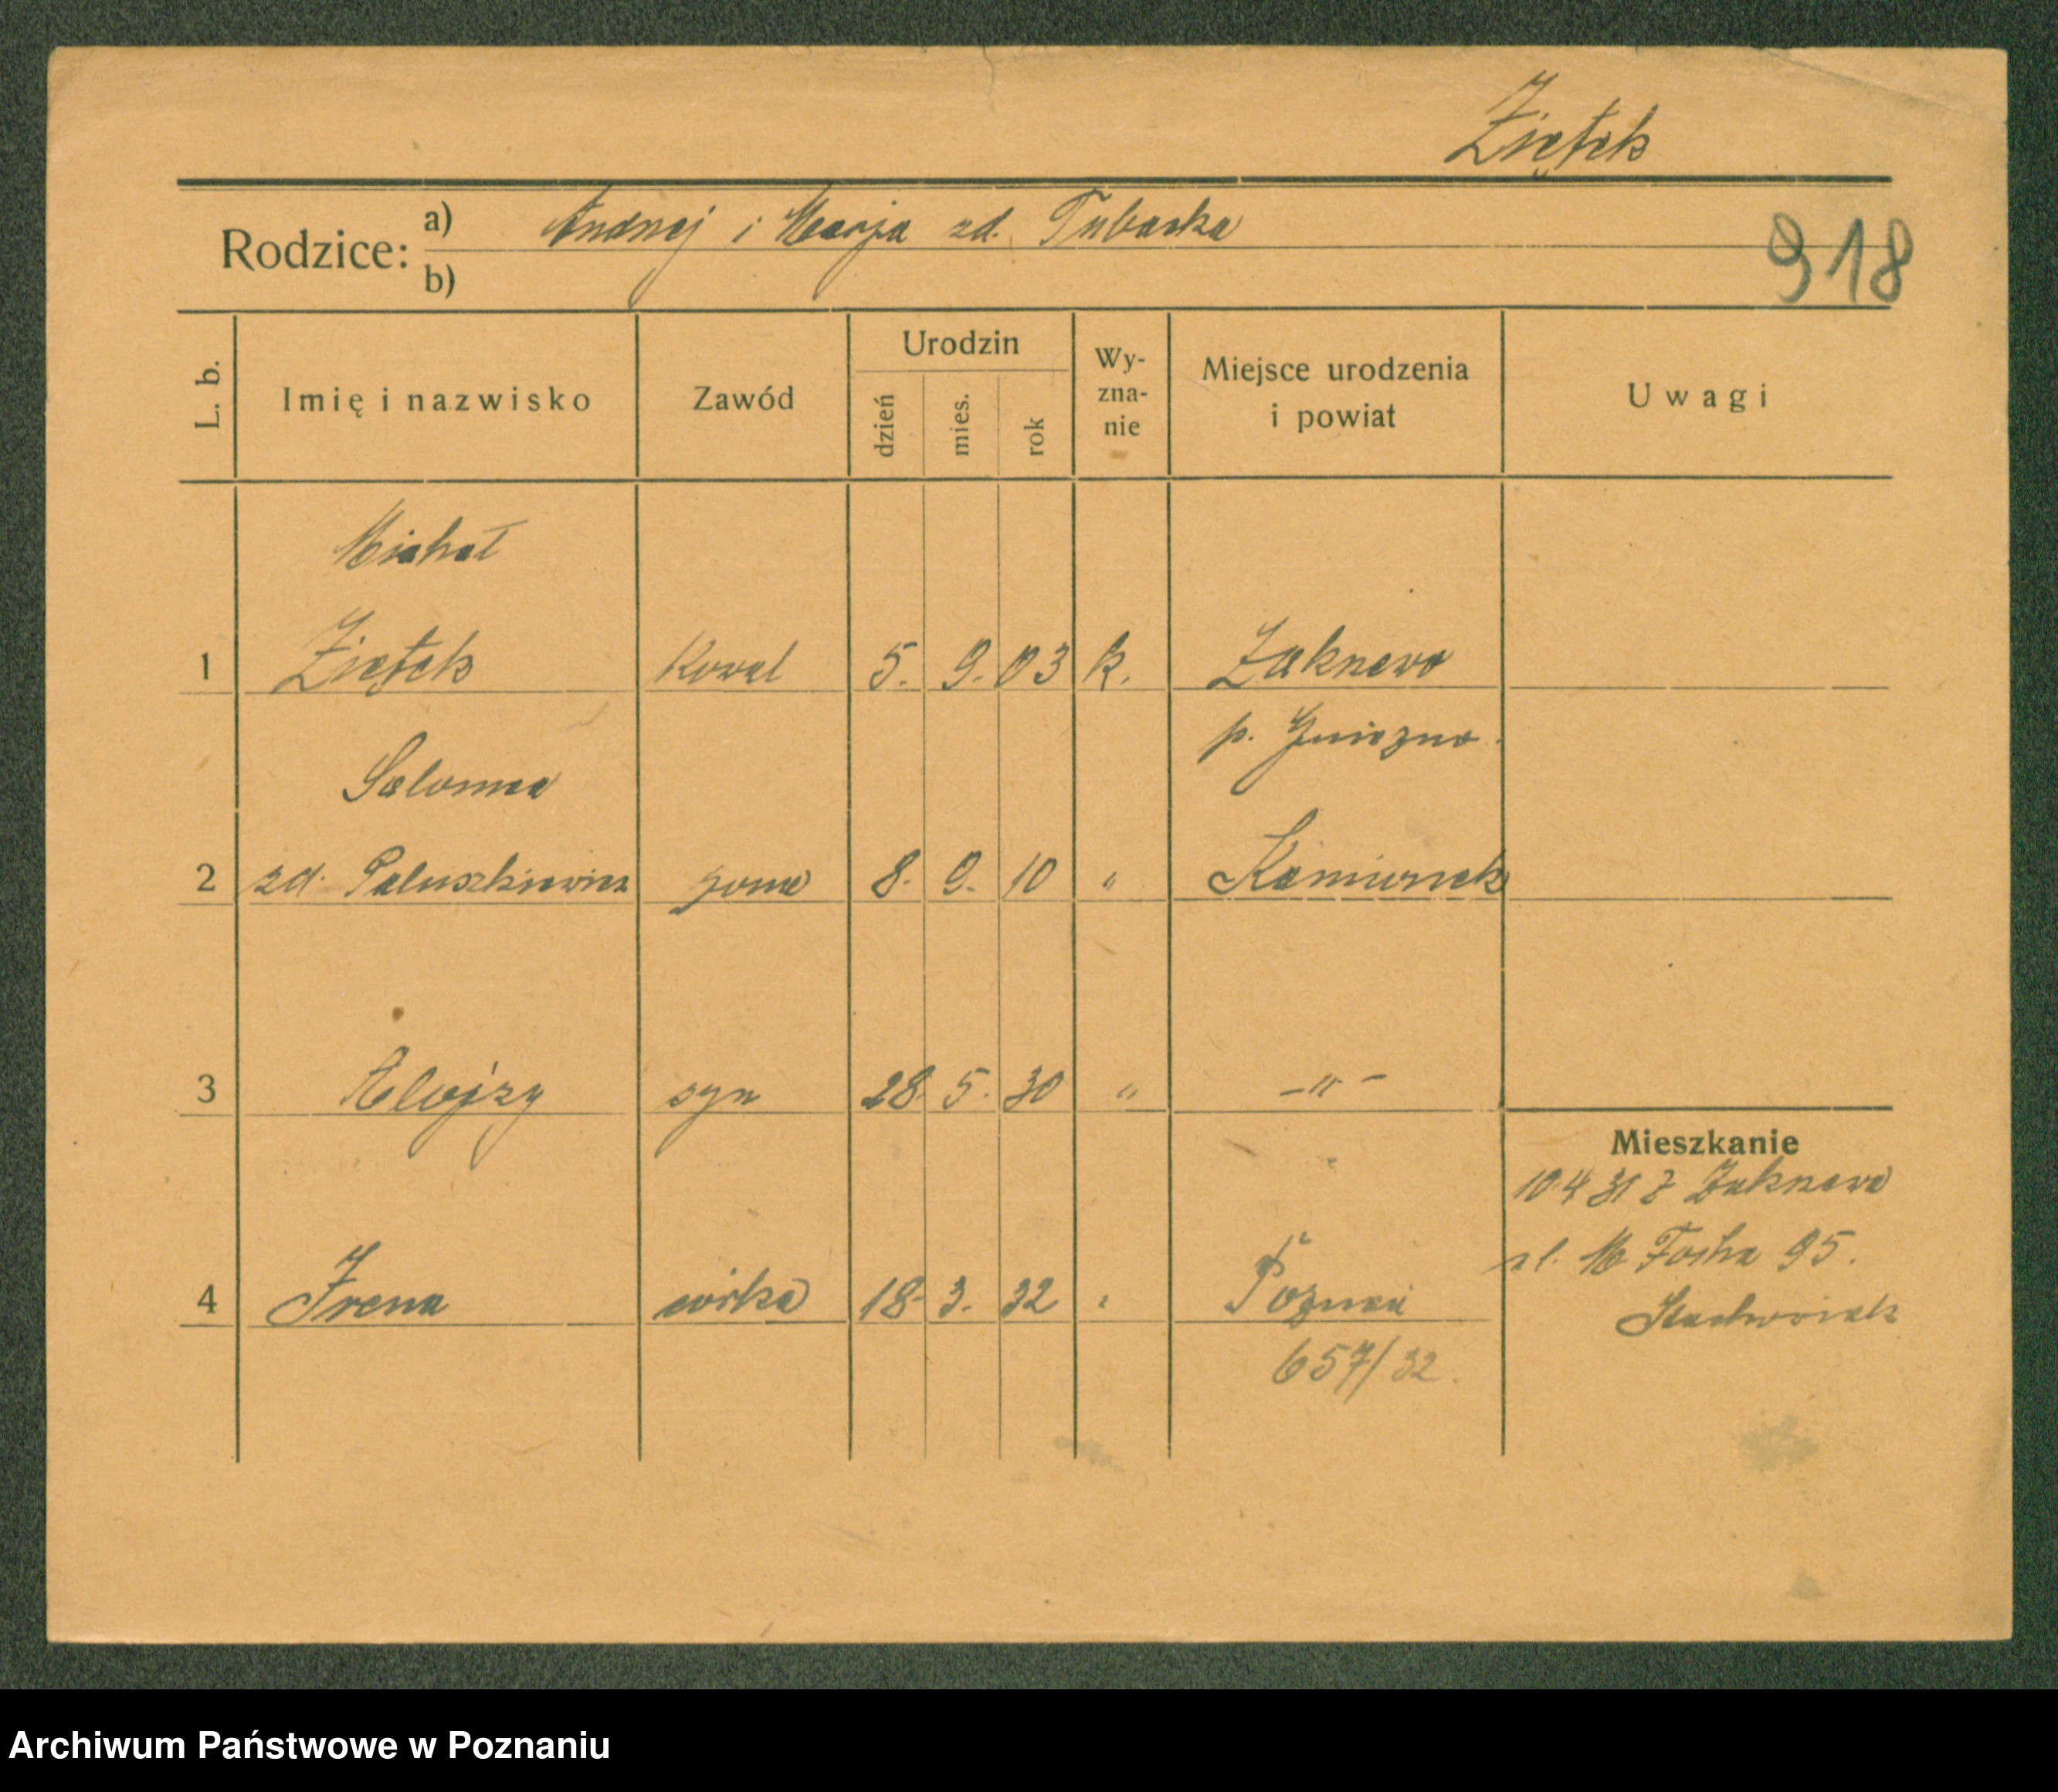 Ziętek
Rodzice: a) Andrzej i Marja zd. Tubacka
b)
918
L. b. Imię i nazwisko Zawód Urodzin dzień mies. rok Wy-zna-nie Miejsce urodzenia i powiat Uwagi
Michał
1 Ziętek Kowal 5. 9. 03 k. Żakrzewo
p. Gniezno.
Salomea
2 zd. Paluszkiewicz żona 8. 9. 10 " Kamionek
3 Alojzy syn 28. 5. 30 " -"-
Mieszkanie
10 4 31 z Żakrzewa
ul. M Focha 95.
4 Irena córka 18. 3. 32 " Poznań
Stachowiak
657/32.
Archiwum Państwowe w Poznaniu